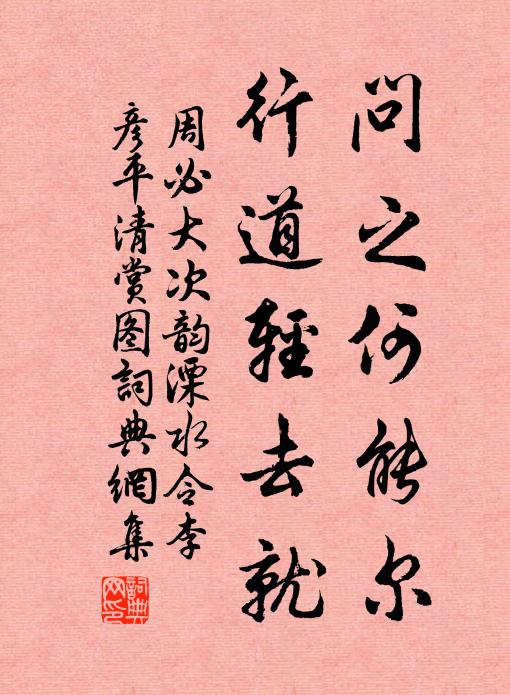 问之何能尔
行道輕去就
周必大次韵溧水令李
彦平清赏图詞典網集
詞典网印